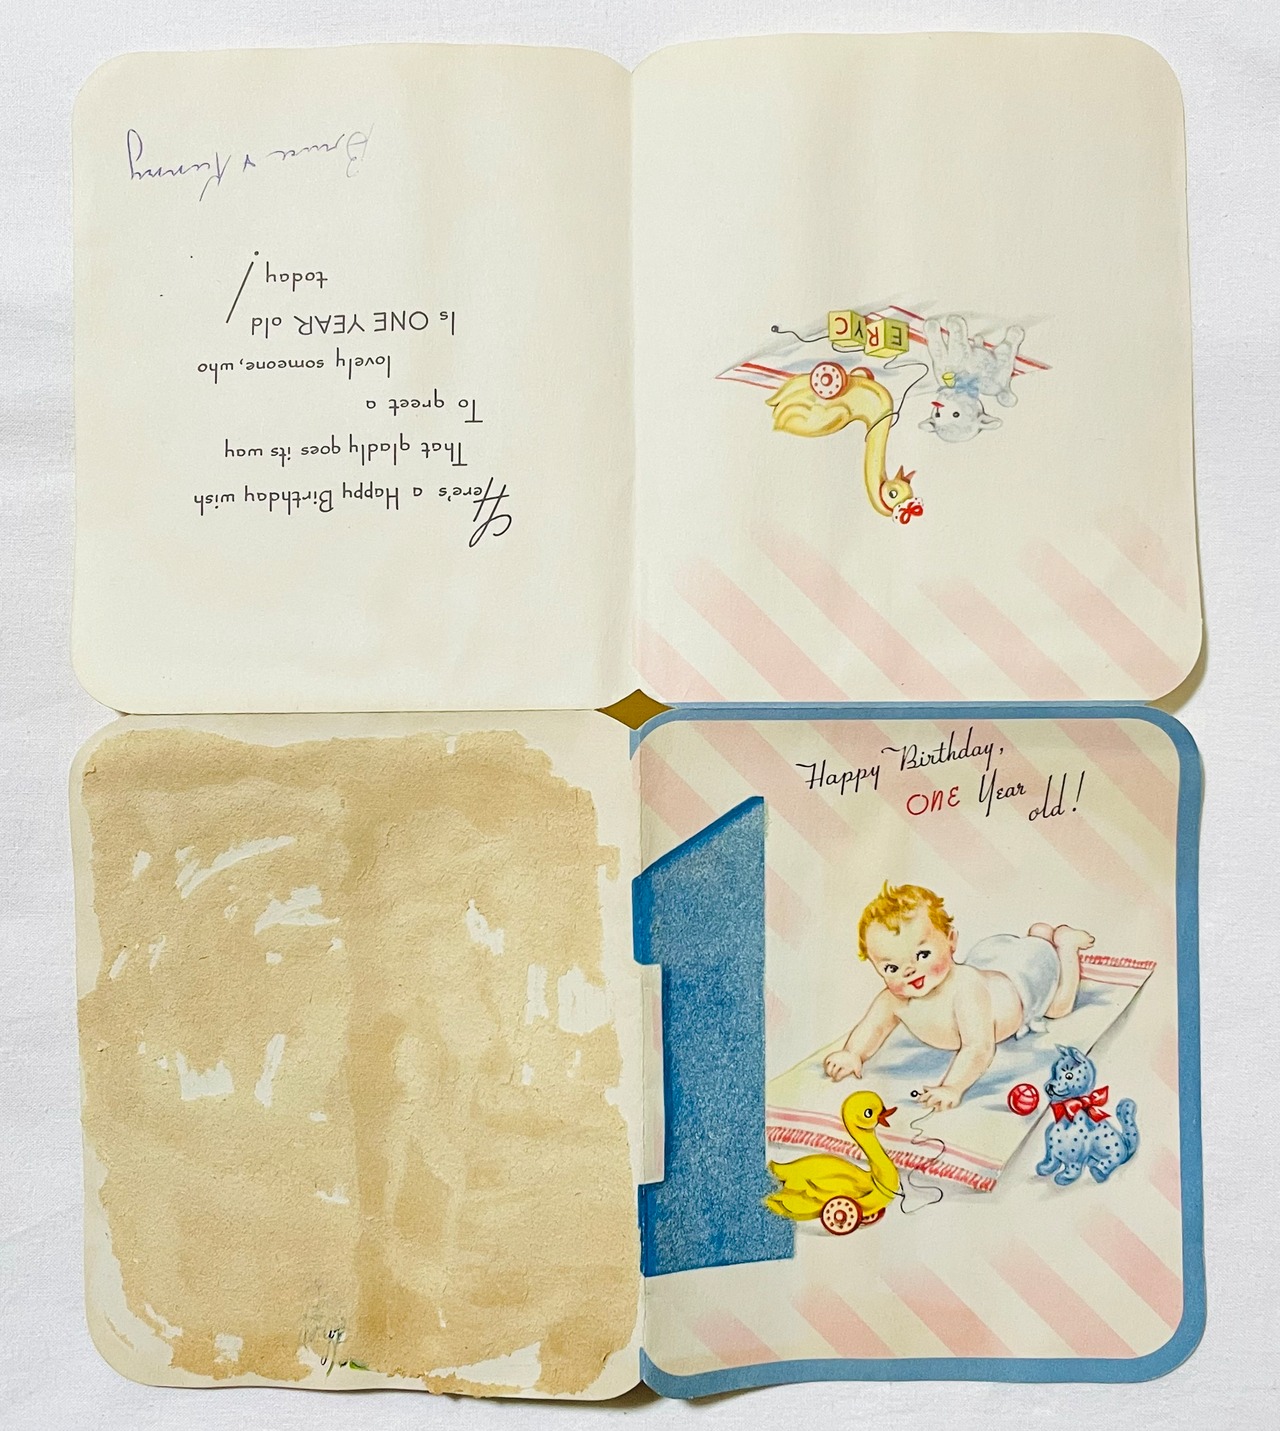 Happy Birthday,
ONE Year
old!
Here's a Happy Birthday wish
That gladly goes its way
To greet a
lovely someone, who
Is ONE YEAR old
today!
Bruce & Kenny
E R Y C